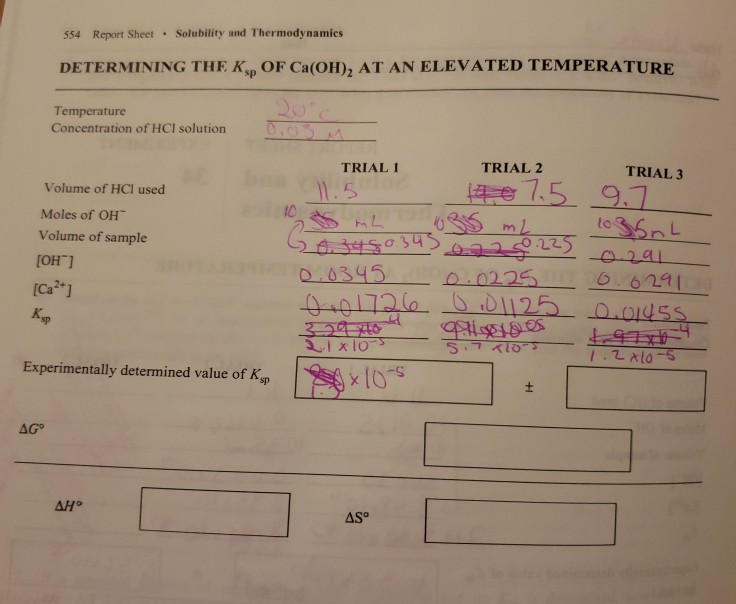 554 Report Sheet • Solubility and Thermodynamics
DETERMINING THE Ksp OF Ca(OH)₂ AT AN ELEVATED TEMPERATURE
Temperature 20°C
Concentration of HCl solution 0.03 M
TRIAL 1 TRIAL 2 TRIAL 3
Volume of HCl used 11.5 7.5 9.7
Moles of OH⁻ 10 mL 10 mL 10 mL
Volume of sample 0.345 0.225 0.291
[OH⁻] 0.0345 0.0225 0.0291
[Ca²⁺] 0.01726 0.01125 0.01455
Ksp 3.29 x10⁻⁴
2.1 x 10⁻⁵ 5.7 x10⁻⁵ 1.2 x10⁻⁵
Experimentally determined value of Ksp x 10⁻⁵ ±
ΔG°
ΔH° ΔS°